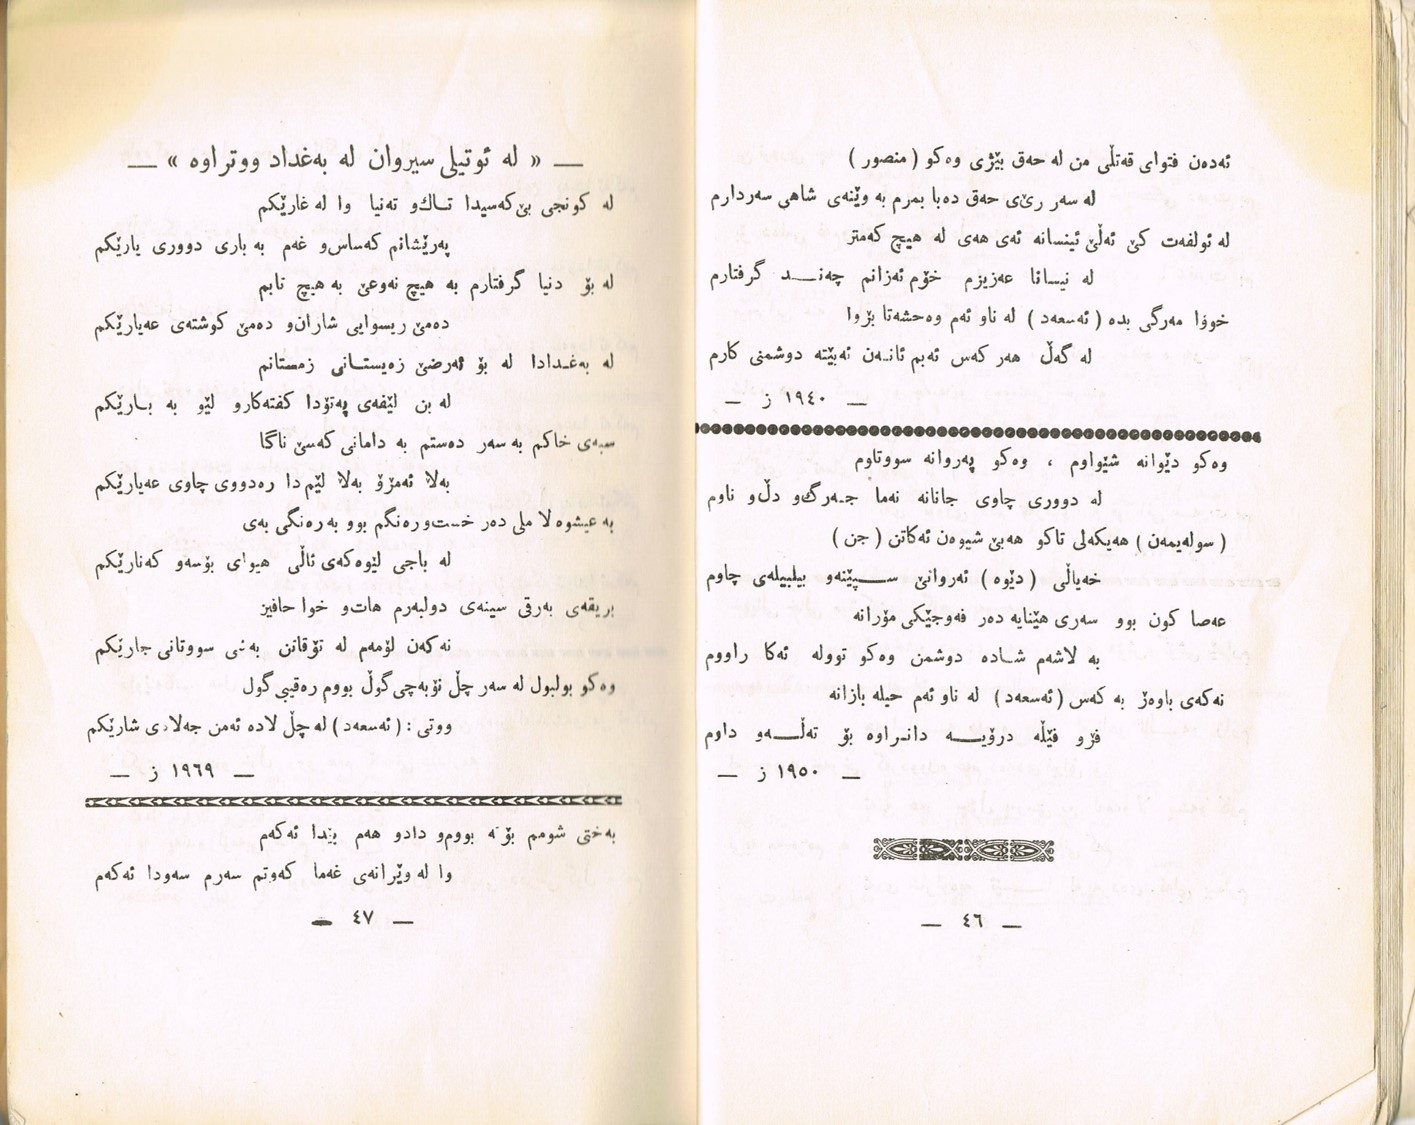 ئەدەن فتوای قەتڵی من لە حەق بێژی وەکو ( منصور )
لە سەر رێ‌ی حەق دەبا بمرم بە وێنەی شاهی سەردارم
لە ئولفەت کێ ئەڵێ ئینسانە ئەی هەی لە هیچ کەمتر
لە نیسانا عەزیزم خۆم ئەزانم چەنــد گرفتارم
خووا مەرگی بدە ( ئەسعەد ) لە ناو ئەم وەحشەتا بڕوا
لە گەڵ هەر کەس ئەبم ئانـەن ئەبێتە دوشمنی کارم
— ١٩٤٠ ز —
وەکو دێوانە شێواوم ، وەکو پەروانە سووتاوم
لە دووری چاوی جانانە نەما جـەرگ‌و دڵ‌و ناوم
( سولەیمەن ) هەیکەلی تاکو هەبێ شیوەن ئەکاتن ( جن )
خەیاڵی ( دێوە ) ئەروانێ ســپێنەو بیلبیلەی چاوم
عەصا کون بوو سەری هێنایە دەر فەوجێکی مۆرانە
بە لاشەم شـادە دوشمن وەکو توولە ئەکا راووم
نەکەی باوەڕ بە کەس ( ئەسعەد ) لە ناو ئەم حیلە بازانە
فڕو فێڵە درۆیــە دانـراوە بۆ تەڵــەو داوم
— ١٩٥٠ ز —
— ٤٦ —
— « لە ئوتیلی سیروان لە بەغداد ووتراوە » —
لە کونجی بێ‌کەسیدا تـاك‌و تەنیا وا لە غارێکم
پەرێشانم کەساس‌و غەم بە باری دووری یارێکم
لە بۆ دنیا گرفتارم بە هیچ نەوعێ بە هیچ نابم
دەمێ ریسوایی شاران‌و دەمێ کوشتەی عەیارێکم
لە بەغـدادا لە بۆ ئەرضێ زەیستـانی زمستانم
لە بن لێفەی پەتۆدا کفتەکارو لێو بە بـارێکم
سبەی خاکم بە سەر دەستم بە دامانی کەسێ ناگا
بەلا ئەمڕۆ بەلا لێم‌دا رەدووی چاوی عەیارێکم
بە عیشوە لا ملی دەر خست‌و رەنگم بوو بە رەنگی بەی
لە باجی لێوەکەی ئاڵی هیوای بۆسەو کەنارێکم
بریقەی بەرقی سینەی دولبەرم هات‌و خوا حافیز
نەکەن لۆمەم لە تۆقاتن بەنی سووتانی جارێکم
وەکو بولبول لە سەر چڵ نۆبەچی‌گوڵ بووم رەقیبی گول
ووتی : ( ئەسعەد ) لە چڵ لادە ئەمن جەلادی شارێکم
— ١٩٦٩ ز —
بەختی شومم بۆتە بووم‌و دادو هەم بێدا ئەکەم
وا لە وێرانەی غەما کەوتم سەرم سەودا ئەکەم
— ٤٧ —